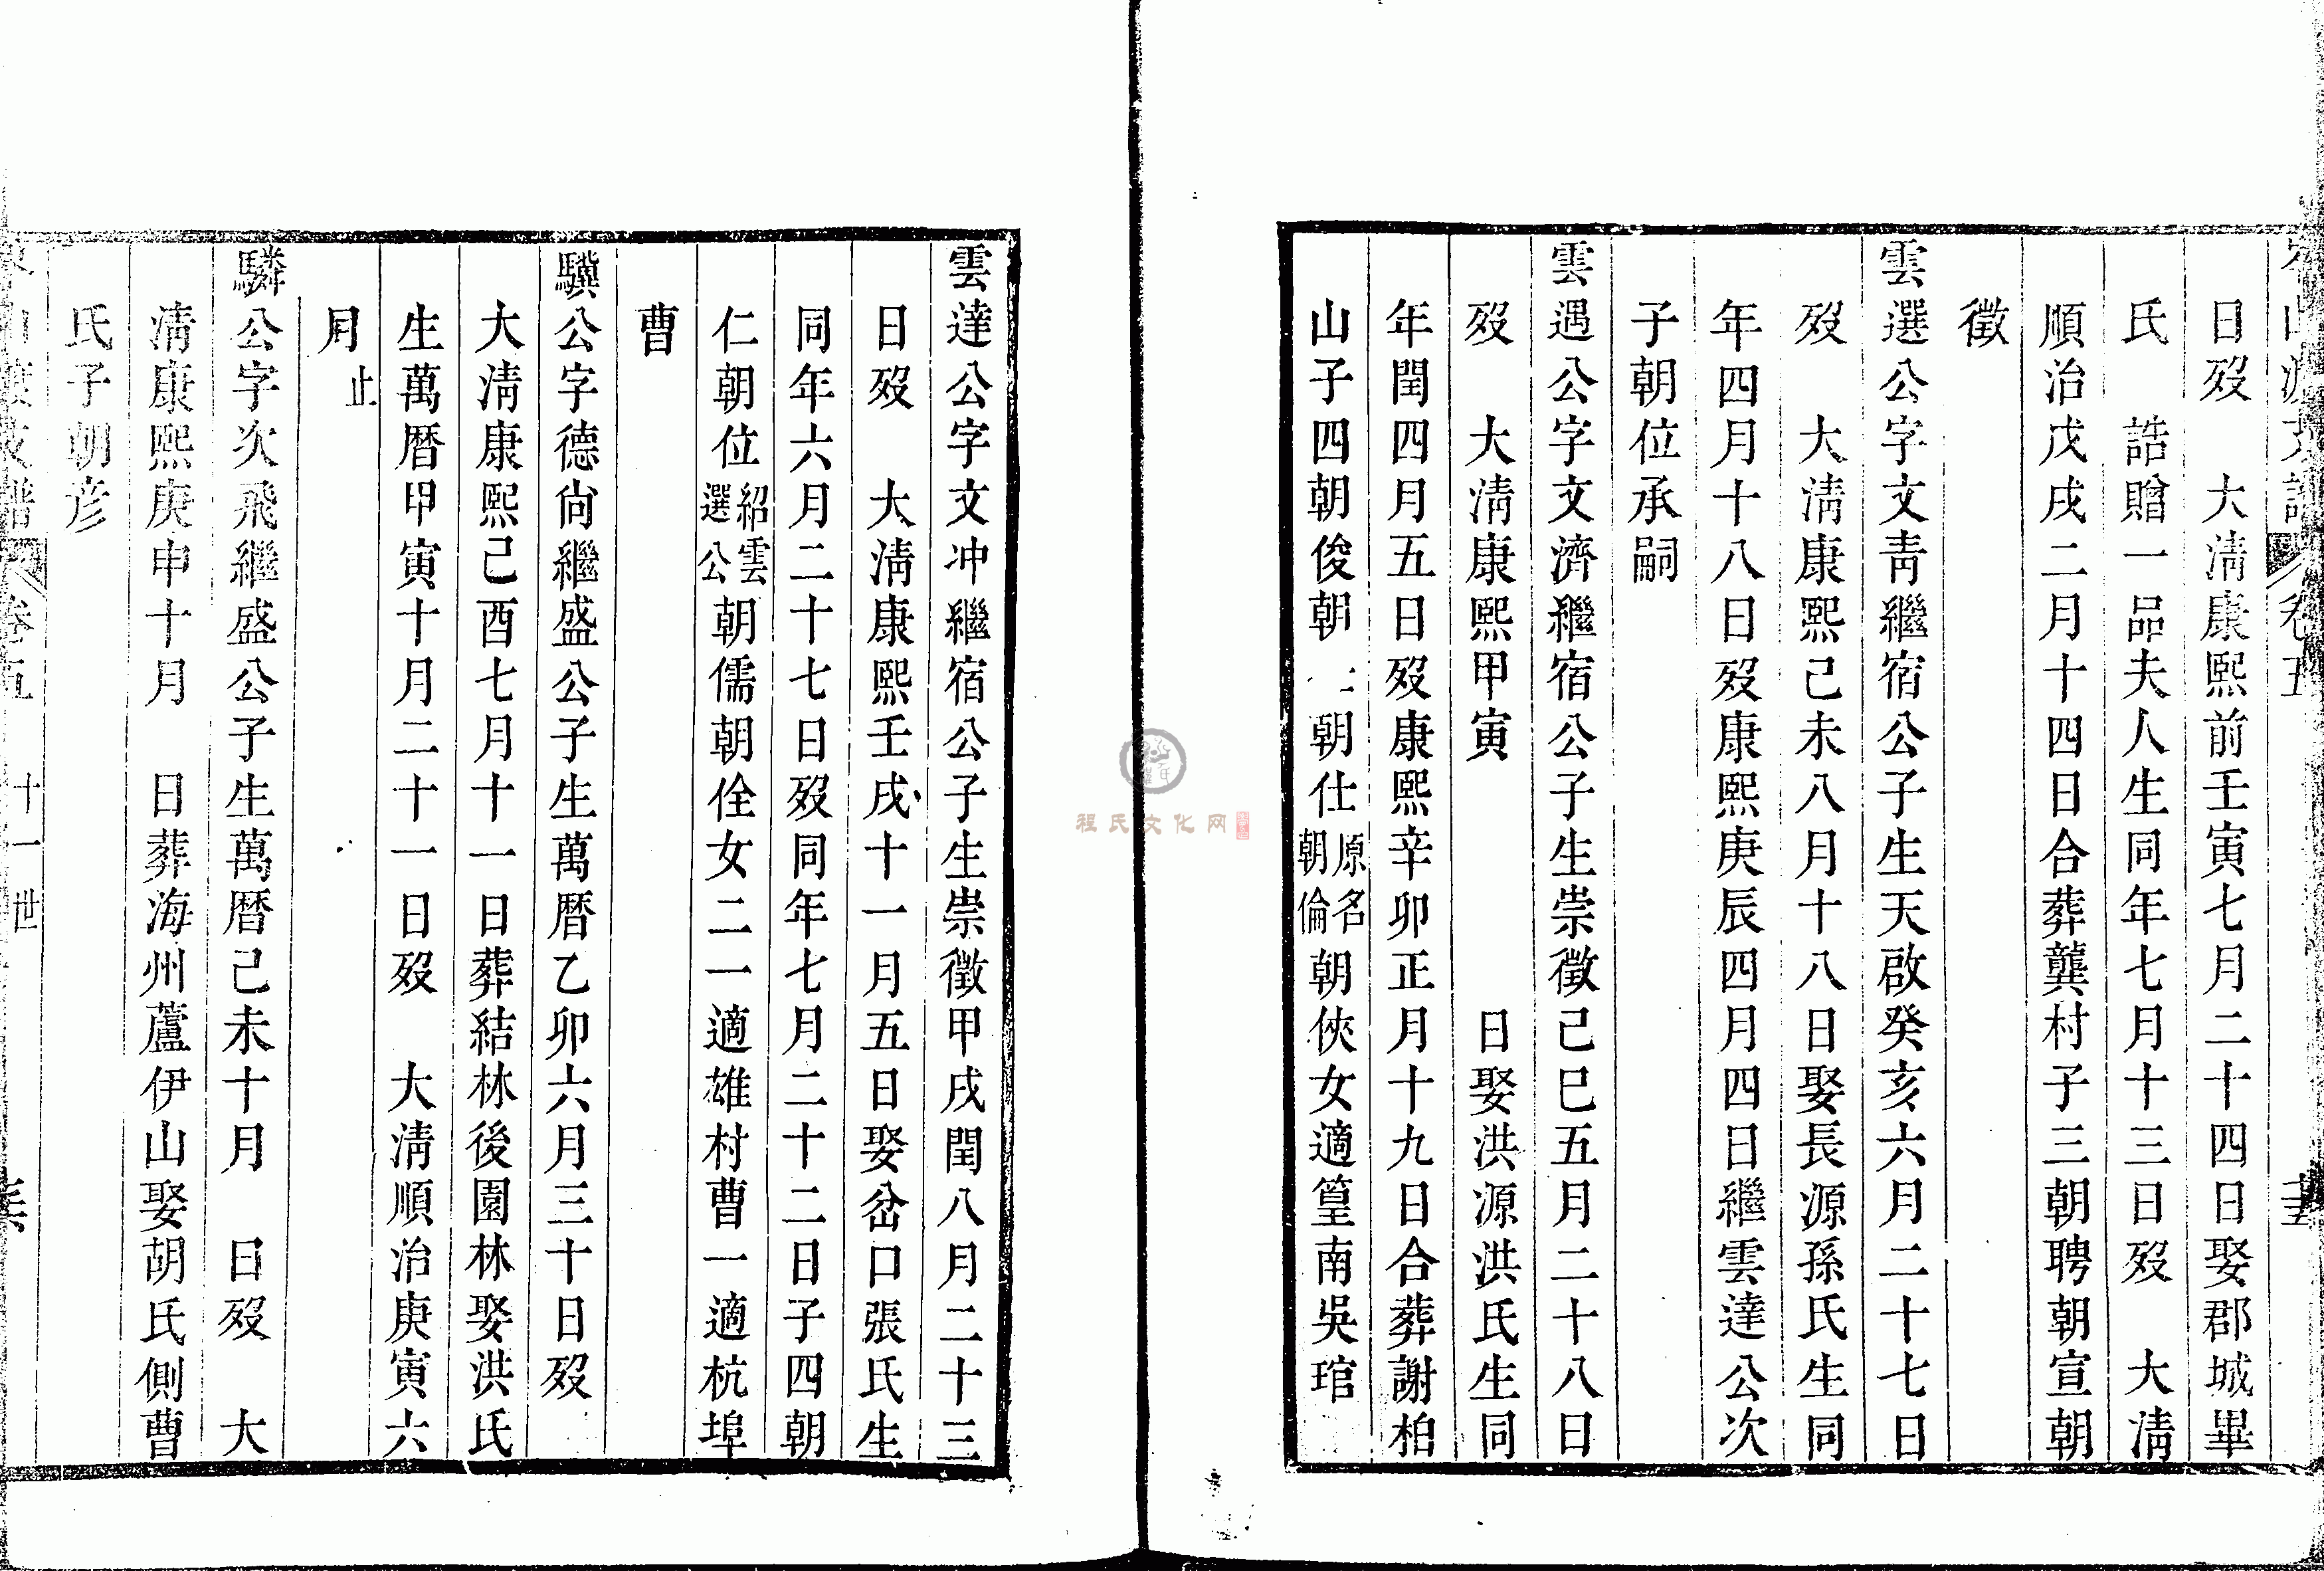 山 支譜 卷五
日歿 大淸康熙前壬寅七月二十四日娶郡城畢
氏 誥贈一品夫人生同年七月十三日歿 大淸
順治戊戌二月十四日合葬龔村子三朝聘朝宣朝
徵
雲選公字文靑繼宿公子生天啟癸亥六月二十七日
歿 大淸康熙己未八月十八日娶長源孫氏生同
年四月十八日歿康熙庚辰四月四日繼雲達公次
子朝位承嗣
雲遇公字文濟繼宿公子生崇徵己巳五月二十八日
歿 大淸康熙甲寅 日娶洪源洪氏生同
年閏四月五日歿康熙辛卯正月十九日合葬謝柏
山子四朝俊朝 朝仕原名朝倫朝俠女適篁南吳琯
雲達公字文冲繼宿公子生崇徵甲戌閏八月二十三
日歿 大淸康熙壬戌十一月五日娶岔口張氏生
同年六月二十七日歿同年七月二十二日子四朝
仁朝位紹雲選公朝儒朝佺女二一適雄村曹一適杭埠
曹
驥公字德尙繼盛公子生萬曆乙卯六月三十日歿
大淸康熙己酉七月十一日葬結林後園林娶洪氏
生萬曆甲寅十月二十一日歿 大淸順治庚寅六
月 止
驎公字次飛繼盛公子生萬曆己未十月 日歿 大
淸康熙庚申十月 日葬海州蘆伊山娶胡氏側曹
氏子朝彥
山 支譜 卷五 十一世
程氏文化网